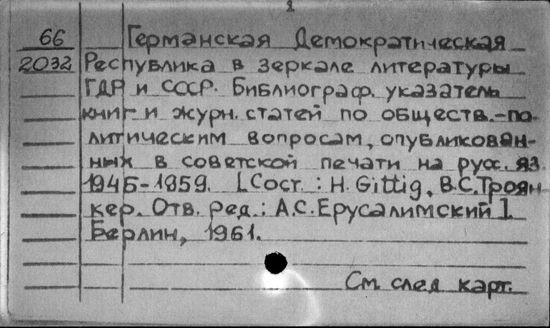 2
66 Германская Демократическая
2032 Республика в зеркале литературы
ГДР и СССР. Библиограф. указатель
книг и журн. статей по обществ.-по-
литическим вопросам, опубликован-
ных в советской печати на русс. яз.
1945-1859. [Сост.: H. Gittig, В.С.Троян-
кер. Отв. ред.: А.С.Ерусалимский].
Берлин, 1961.
См. след. карт.